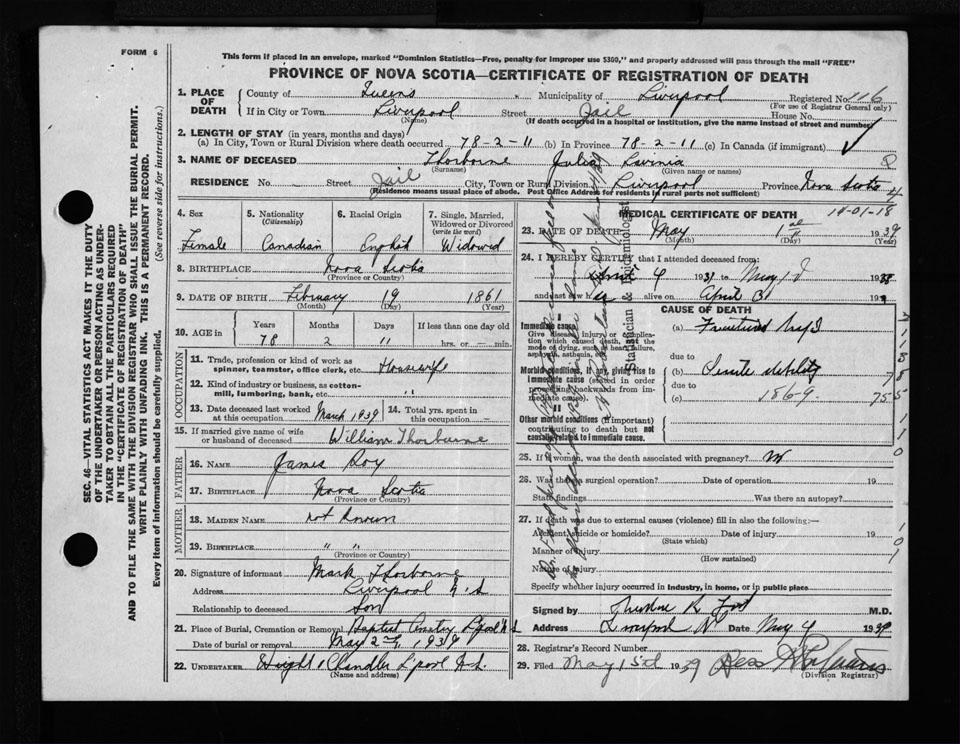 FORM 6
This form if placed in an envelope, marked "Dominion Statistics—Free, penalty for improper use $300," and properly addressed will pass through the mail "FREE"
PROVINCE OF NOVA SCOTIA—CERTIFICATE OF REGISTRATION OF DEATH
1. PLACE OF DEATH County of Queens Municipality of Liverpool Registered No. 116
(For use of Registrar General only)
If in City or Town Liverpool Street Jail House No.
(Name) (If death occurred in a hospital or institution, give the name instead of street and number)
2. LENGTH OF STAY (in years, months and days)
(a) In City, Town or Rural Division where death occurred 78-2-11 (b) In Province 78-2-11 (c) In Canada (if immigrant)
3. NAME OF DECEASED Thorborne Julia Lavinia
(Surname) (Given name or names)
RESIDENCE No. Street Jail City, Town or Rural Division Liverpool Province Nova Scotia
(Residence means usual place of abode. Post Office Address for residents in rural parts not sufficient)
4. Sex Female
5. Nationality (Citizenship) Canadian
6. Racial Origin English
7. Single, Married, Widowed or Divorced (write the word) Widowed
8. BIRTHPLACE Nova Scotia
(Province or Country)
9. DATE OF BIRTH February 19 1861
(Month) (Day) (Year)
10. AGE in Years Months Days If less than one day old
78 2 11 hrs. or min.
OCCUPATION
11. Trade, profession or kind of work as spinner, teamster, office clerk, etc. Housewife
12. Kind of industry or business, as cotton-mill, lumbering, bank, etc. "
13. Date deceased last worked at this occupation March 1939
14. Total yrs. spent in this occupation
15. If married give name of wife or husband of deceased William Thorburne
FATHER
16. NAME James Roy
17. BIRTHPLACE Nova Scotia
(Province or Country)
MOTHER
18. MAIDEN NAME not known
19. BIRTHPLACE " "
(Province or Country)
20. Signature of informant Mark Thorborne
Address Liverpool N.S
Relationship to deceased Son
21. Place of Burial, Cremation or Removal Baptist Cemetry L'pool N S
Date of burial or removal May 2nd, 1939
22. UNDERTAKER Wright & Chandler L'pool N.S.
(Name and address)
MEDICAL CERTIFICATE OF DEATH
14-01-18
23. DATE OF DEATH May 1st 1939
(Month) (Day) (Year)
24. I HEREBY CERTIFY that I attended deceased from
April 4 1931 to May 1 1938
and last saw alive on April 193
CAUSE OF DEATH
Immediate cause
Give disease, injury or complication which caused death, not the mode of dying, such as heart failure, asphyxia, asthenia. (a)
due to
Morbid conditions, if any, giving rise to immediate cause (stated in order proceeding backwards from immediate cause). (b) Senile debility
due to
(c) 186-9.
Other morbid conditions (if important) contributing to death but not causally related to immediate cause.
Statistician & Epidemiologist
25. If a woman, was the death associated with pregnancy? no
26. Was there a surgical operation? Date of operation 19
State findings Was there an autopsy?
27. If death was due to external causes (violence) fill in also the following:—
Accident, suicide or homicide? Date of injury 19
(State which)
Manner of injury
(How sustained)
Nature of injury
Specify whether injury occurred in industry, in home, or in public place
Signed by M.D.
Address Liverpool N Date May 4 1939
28. Registrar's Record Number
29. Filed May 15th 1939
(Division Registrar)
SEC. 46—VITAL STATISTICS ACT MAKES IT THE DUTY
OF THE UNDERTAKER OR PERSON ACTING AS UNDERTAKER
TO OBTAIN ALL THE PARTICULARS REQUIRED
IN THE "CERTIFICATE OF REGISTRATION OF DEATH"
AND TO FILE THE SAME WITH THE DIVISION REGISTRAR WHO SHALL ISSUE THE BURIAL PERMIT.
WRITE PLAINLY WITH UNFADING INK. THIS IS A PERMANENT RECORD.
Every item of information should be carefully supplied. (See reverse side for instructions.)